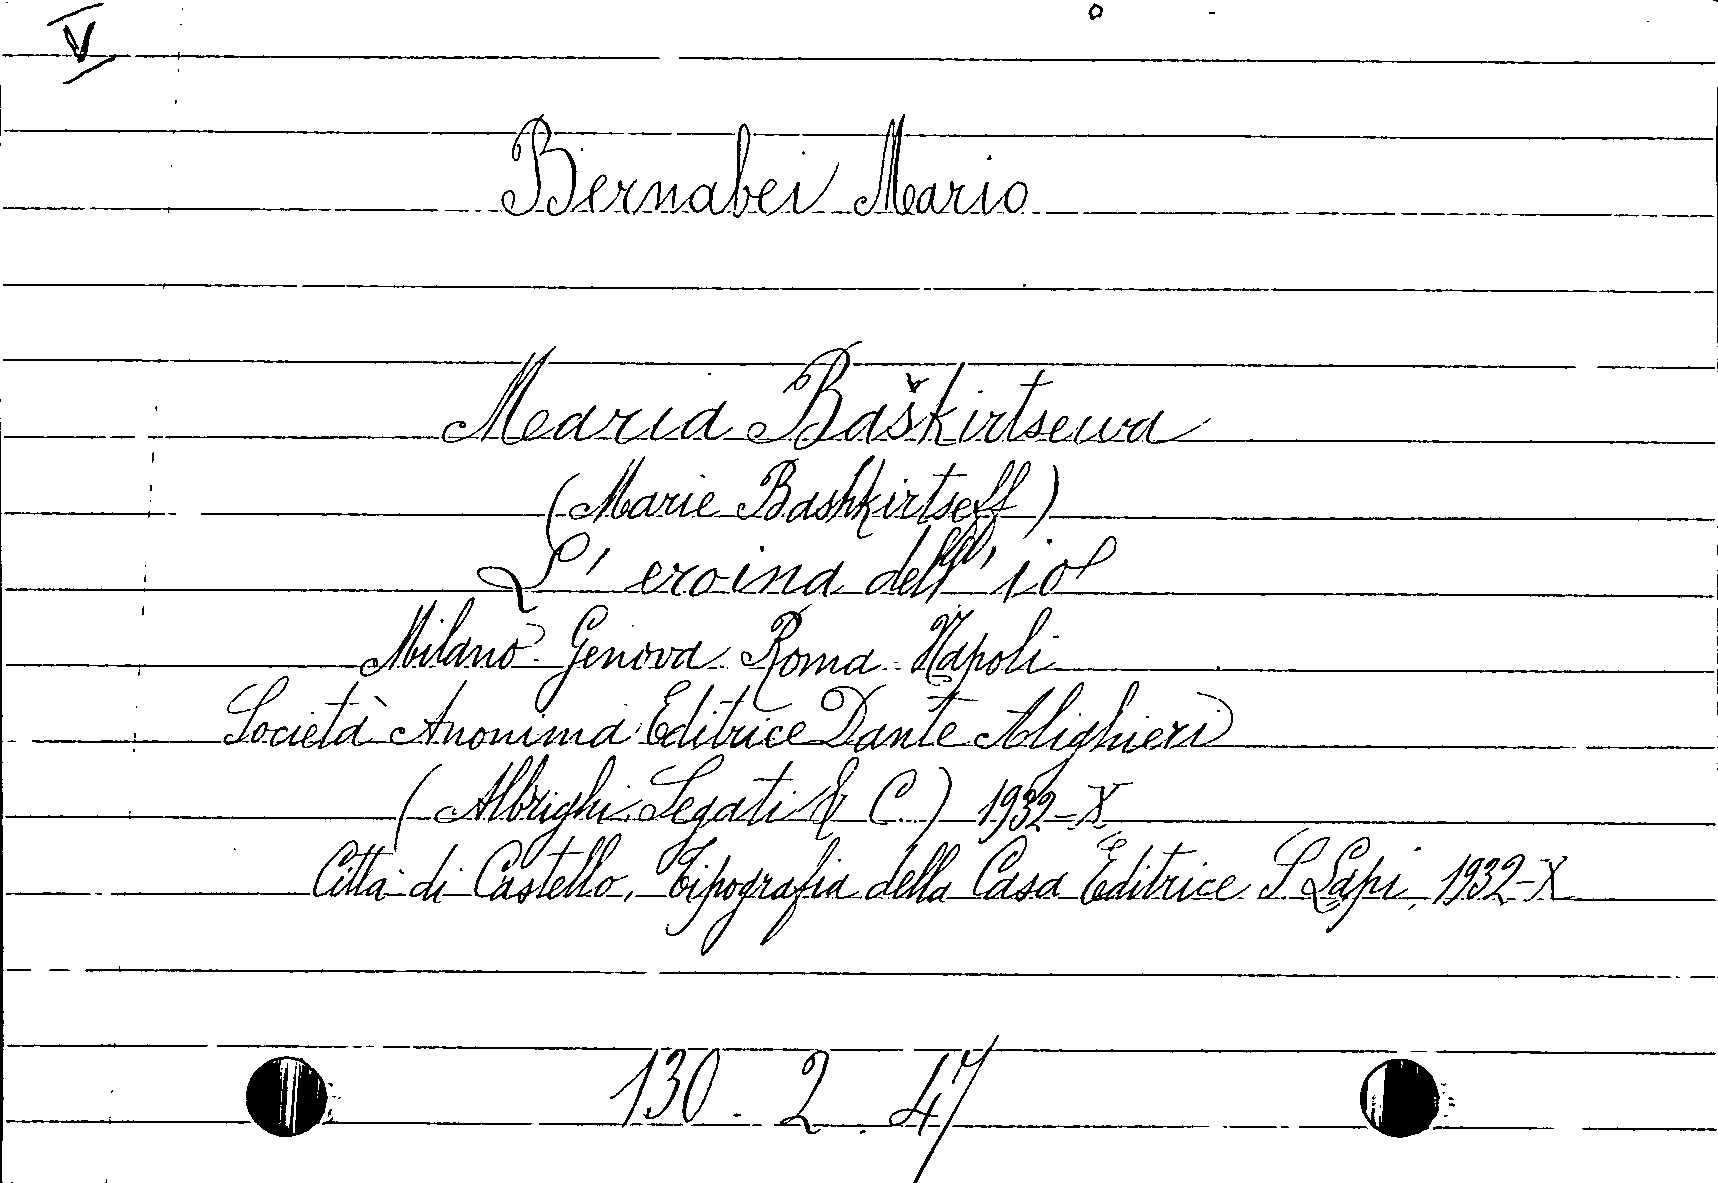 V
Bernabei Mario
Maria Baškirtsewa
(Marie Bashkirtseff)
L'eroina dell'io
Milano Genova Roma Napoli
Società Anonima Editrice Dante Alighieri
(Albrighi Segati & C.) 1932-X
Città di Castello, Tipografia della Casa Editrice S. Lapi, 1932-X
130. 2. 47